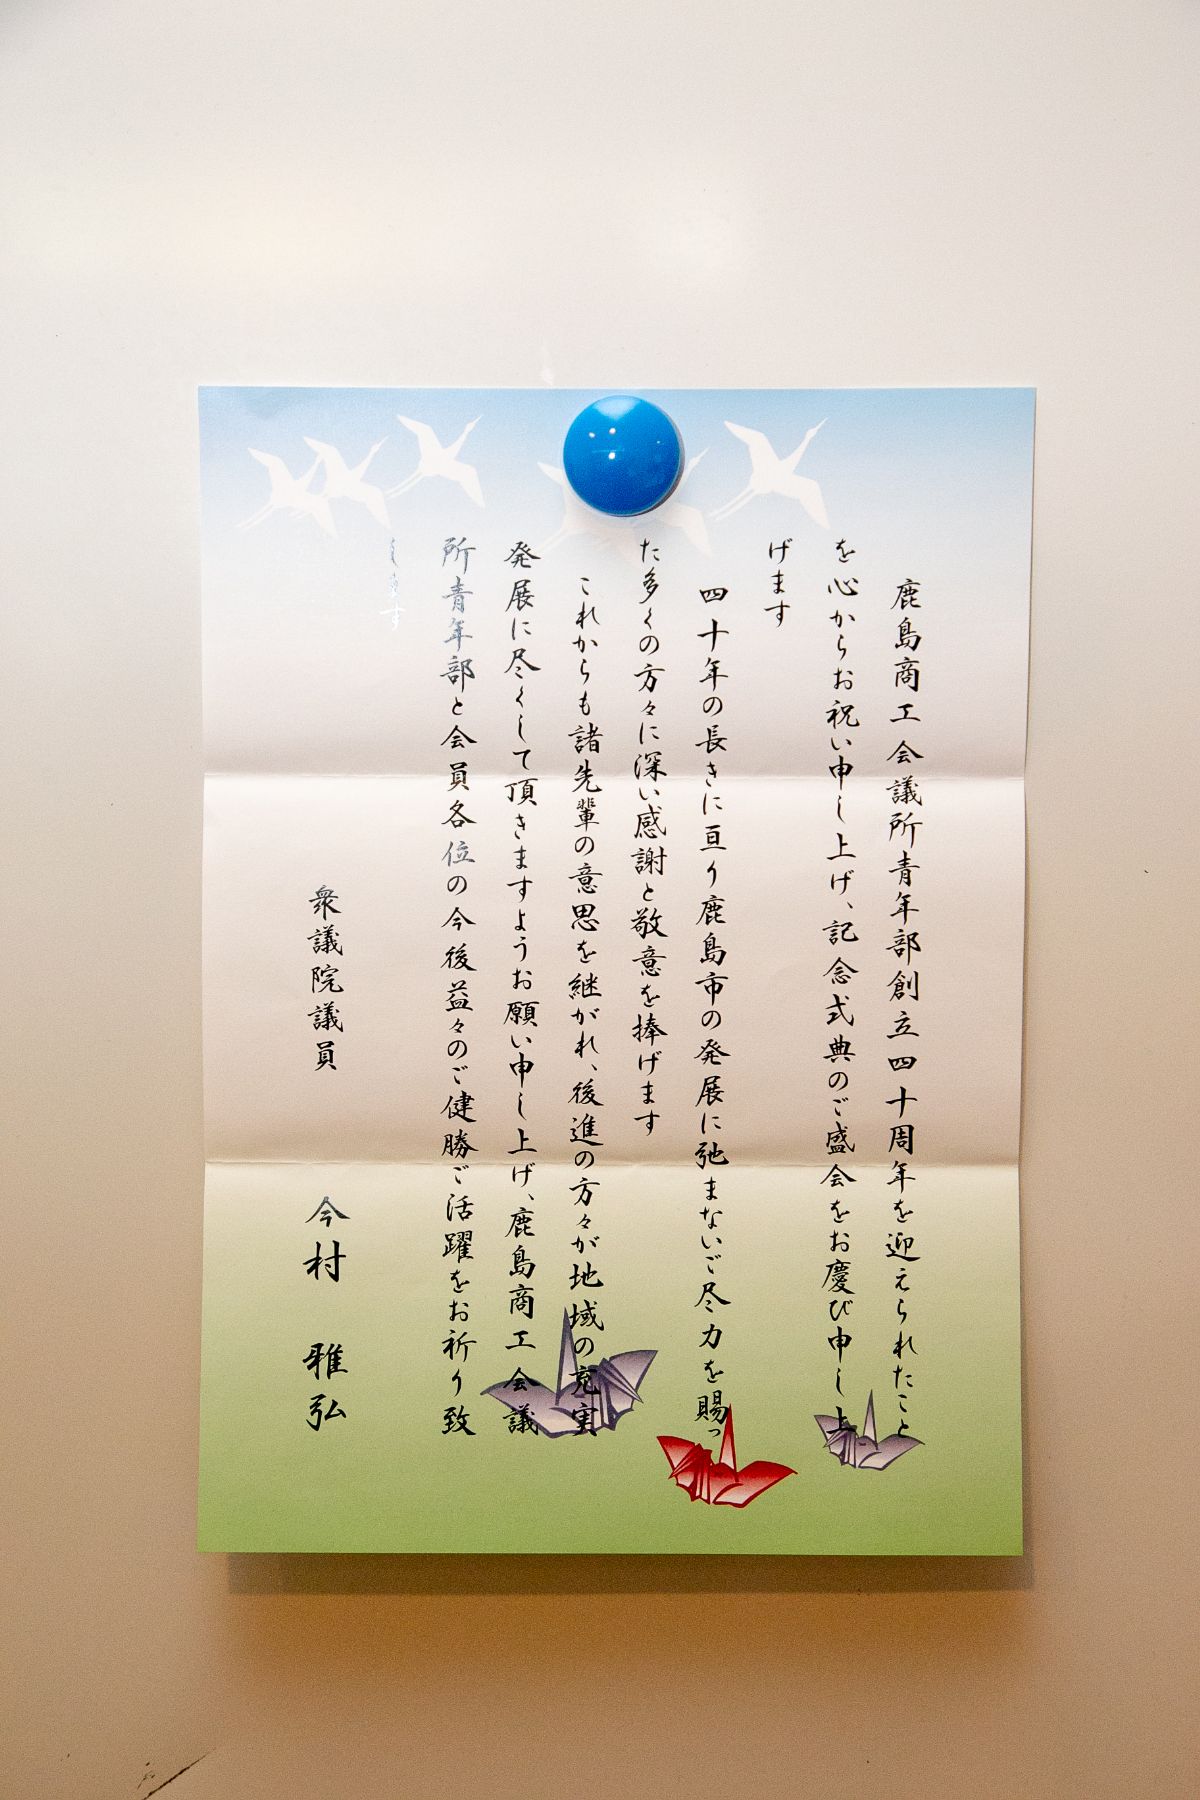 鹿島商工会議所青年部創立四十周年を迎えられたこと
を心からお祝い申し上げ、記念式典のご盛会をお慶び申し上
げます
四十年の長きに亘り鹿島市の発展に弛まないご尽力を賜っ
た多くの方々に深い感謝と敬意を捧げます
これからも諸先輩の意思を継がれ、後進の方々が地域の充実
発展に尽くして頂きますようお願い申し上げ、鹿島商工会議
所青年部と会員各位の今後益々のご健勝ご活躍をお祈り致
します
衆議院議員 今村 雅弘